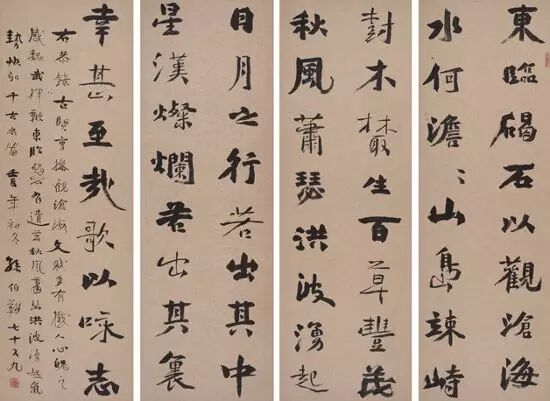 東臨碣石以觀滄海
水何澹〻山島竦峙
樹木叢生百草豐茂
秋風蕭瑟洪波湧起
日月之行若出其中
星漢燦爛若出其裏
幸甚至哉歌以詠志
右恭錄古賢曹操觀滄海文賦多有撼人心魄之
感魏武揮鞭東臨碣石有遺篇秋風蕭瑟洪波湧起氣
勢恢弘千古 壬辰年初冬 孫伯翔七十又九